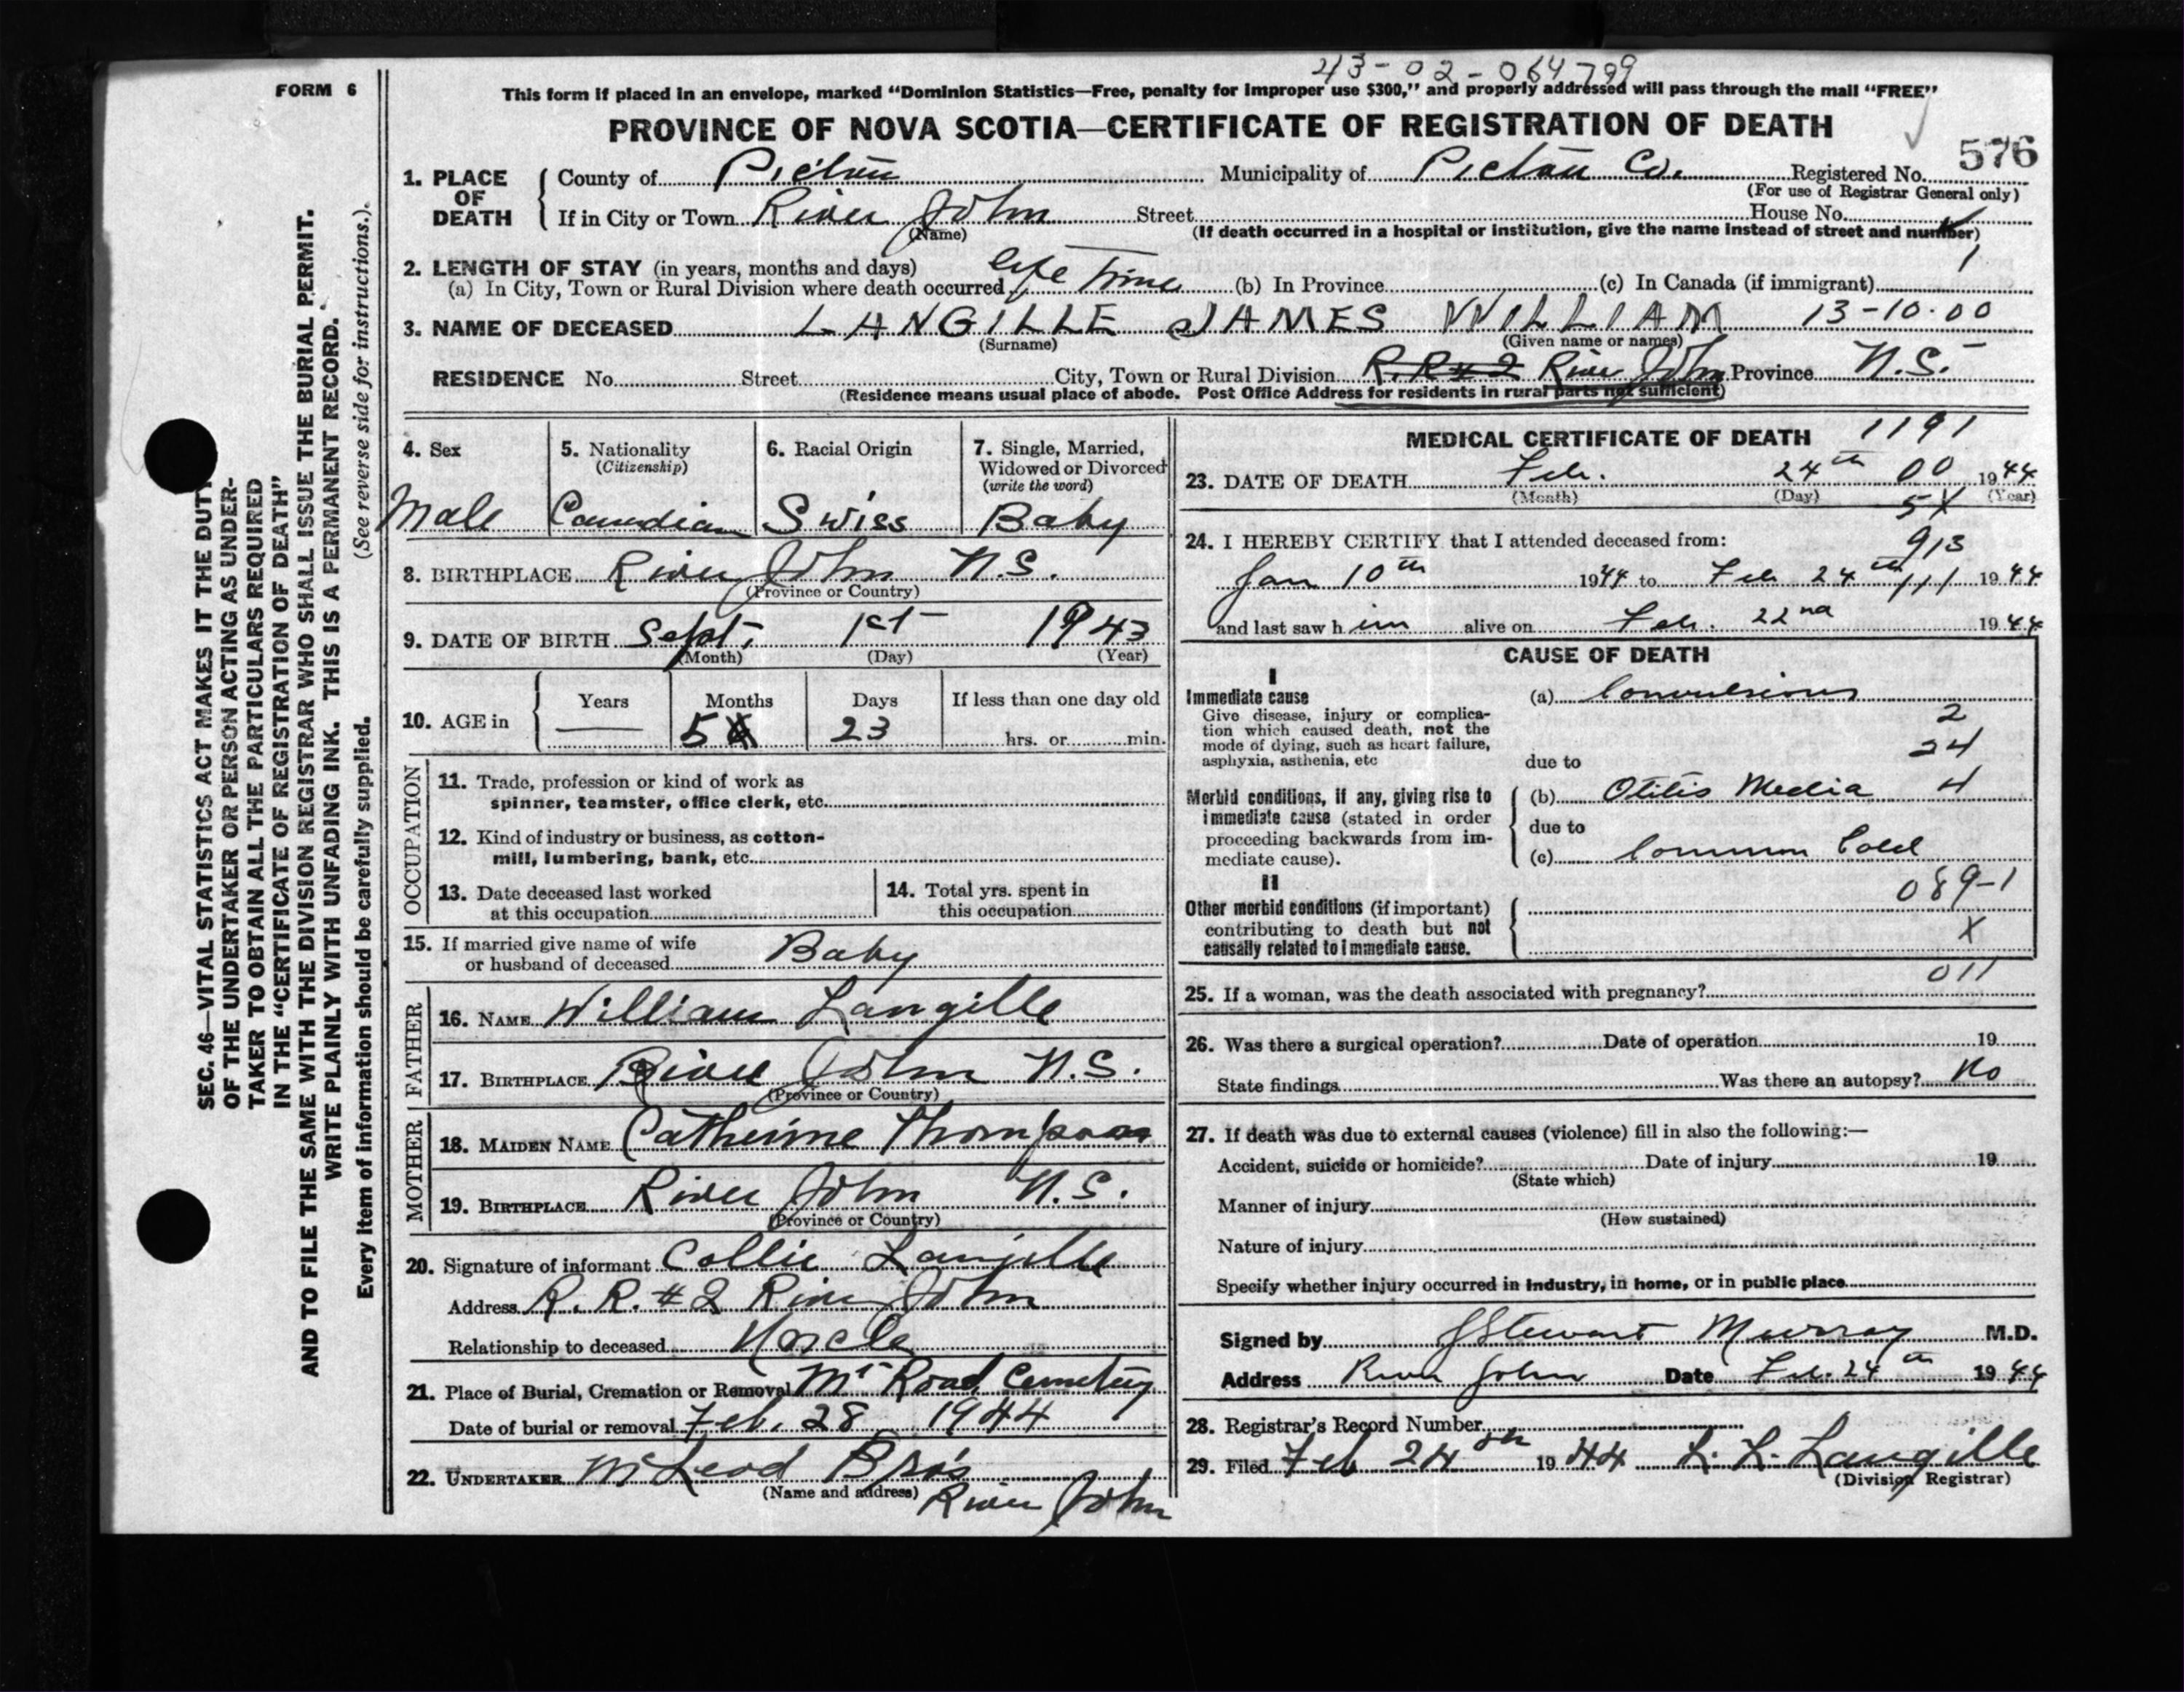 43-02-064799
FORM 6
This form if placed in an envelope, marked "Dominion Statistics—Free, penalty for improper use $300," and properly addressed will pass through the mail "FREE"
PROVINCE OF NOVA SCOTIA—CERTIFICATE OF REGISTRATION OF DEATH
576
1. PLACE OF DEATH
County of Pictou Municipality of Pictou Co. Registered No.
(For use of Registrar General only)
If in City or Town River John Street House No.
(Name) (If death occurred in a hospital or institution, give the name instead of street and number)
1
2. LENGTH OF STAY (in years, months and days)
(a) In City, Town or Rural Division where death occurred life time (b) In Province (c) In Canada (if immigrant)
3. NAME OF DECEASED LANGILLE JAMES WILLIAM 13-10-00
(Surname) (Given name or names)
RESIDENCE No. Street City, Town or Rural Division R.R#2 River John Province N.S.
(Residence means usual place of abode. Post Office Address for residents in rural parts not sufficient)
4. Sex
Male
5. Nationality
(Citizenship)
Canadian
6. Racial Origin
Swiss
7. Single, Married,
Widowed or Divorced
(write the word)
Baby
8. BIRTHPLACE River John N.S.
(Province or Country)
9. DATE OF BIRTH Sept. 1st 1943
(Month) (Day) (Year)
10. AGE in
Years Months Days If less than one day old
— 5 23 hrs. or min.
OCCUPATION
11. Trade, profession or kind of work as
spinner, teamster, office clerk, etc.
12. Kind of industry or business, as cotton-
mill, lumbering, bank, etc.
13. Date deceased last worked
at this occupation
14. Total yrs. spent in
this occupation
15. If married give name of wife
or husband of deceased Baby
FATHER
16. NAME William Langille
17. BIRTHPLACE River John N.S.
(Province or Country)
MOTHER
18. MAIDEN NAME Catherine Thompson
19. BIRTHPLACE River John N.S.
(Province or Country)
20. Signature of informant Collie Langille
Address R. R. #2 River John
Relationship to deceased Uncle
21. Place of Burial, Cremation or Removal Mt Road Cemetery
Date of burial or removal Feb. 28 1944
22. UNDERTAKER McLeod Bro's
(Name and address) River John
MEDICAL CERTIFICATE OF DEATH 1191
23. DATE OF DEATH Feb. 24th 00 1944
(Month) (Day) (Year)
5X
24. I HEREBY CERTIFY that I attended deceased from:
913
Jan 10th 1944 to Feb 24th 111 1944
and last saw him alive on Feb. 22nd 1944
CAUSE OF DEATH
I
Immediate cause
Give disease, injury or complica-
tion which caused death, not the
mode of dying, such as heart failure,
asphyxia, asthenia, etc
(a) Convulsions
2
24
due to
Morbid conditions, if any, giving rise to
immediate cause (stated in order
proceeding backwards from im-
mediate cause).
(b) Otitis Media 4
due to
(c) Common Cold
089-1
II
Other morbid conditions (if important)
contributing to death but not
causally related to immediate cause.
X
011
25. If a woman, was the death associated with pregnancy?
26. Was there a surgical operation? Date of operation 19
State findings Was there an autopsy? No
27. If death was due to external causes (violence) fill in also the following:—
Accident, suicide or homicide? Date of injury 19
(State which)
Manner of injury
(How sustained)
Nature of injury
Specify whether injury occurred in industry, in home, or in public place
Signed by J Stewart Murray M.D.
Address River John Date Feb. 24th 1944
28. Registrar's Record Number
29. Filed Feb 24th 1944 L. L. Langille
(Division Registrar)
SEC. 46—VITAL STATISTICS ACT MAKES IT THE DUTY
OF THE UNDERTAKER OR PERSON ACTING AS UNDER-
TAKER TO OBTAIN ALL THE PARTICULARS REQUIRED
IN THE "CERTIFICATE OF REGISTRATION OF DEATH"
AND TO FILE THE SAME WITH THE DIVISION REGISTRAR WHO SHALL ISSUE THE BURIAL PERMIT.
WRITE PLAINLY WITH UNFADING INK. THIS IS A PERMANENT RECORD.
Every item of information should be carefully supplied. (See reverse side for instructions.)